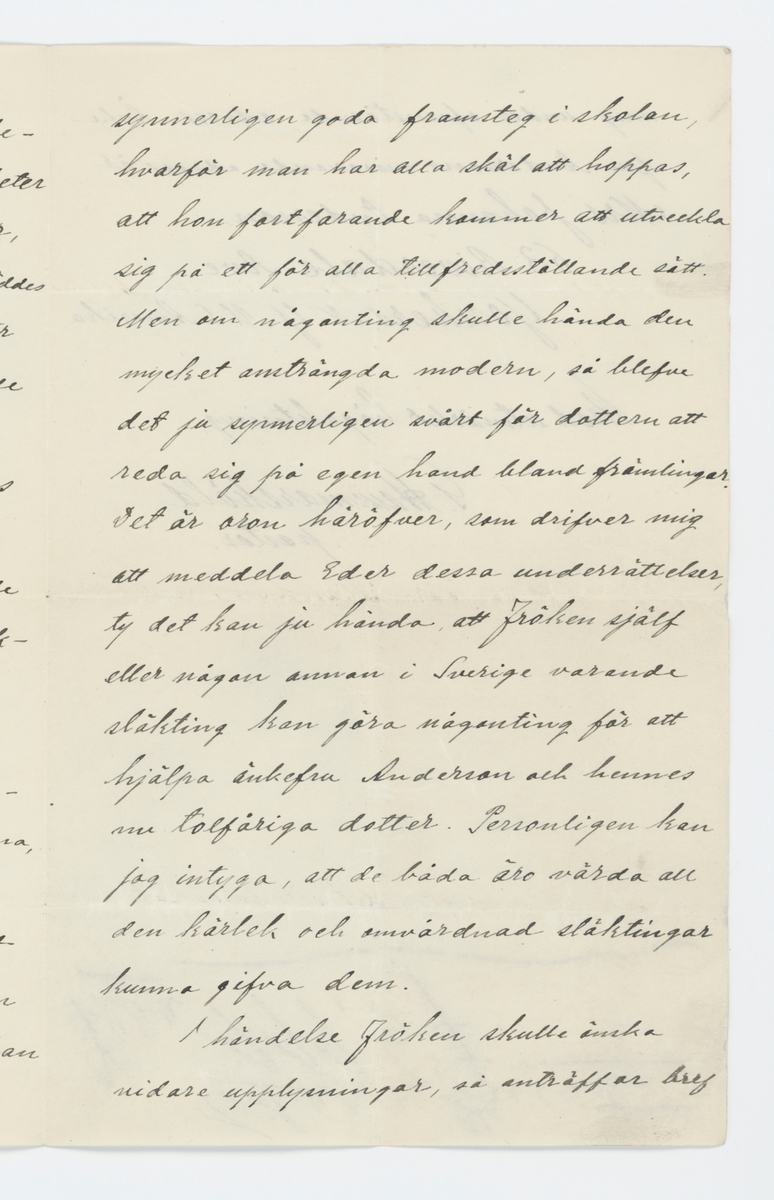 synnerligen goda framsteg i skolan,
hvarför man har alla skäl att hoppas,
att hon fortfarande kommer att utveckla
sig på ett för alla tillfredsställande sätt.
Men om någonting skulle hända den
mycket ansträngda modern, så blefve
det ju synnerligen svårt för dottern att
reda sig på egen hand bland främlingar.
Det är oron häröfver, som drifver mig
att meddela Eder dessa underrättelser,
ty det kan ju hända, att Fröken själf
eller någon annan i Sverige varande
släkting kan göra någonting för att
hjälpa änkefru Anderson och hennes
nu tolfåriga dotter. Personligen kan
jag intyga, att de båda äro värda all
den kärlek och omvårdnad släktingar
kunna gifva dem.
I händelse Fröken skulle önska
vidare upplysningar, så anträffar bref